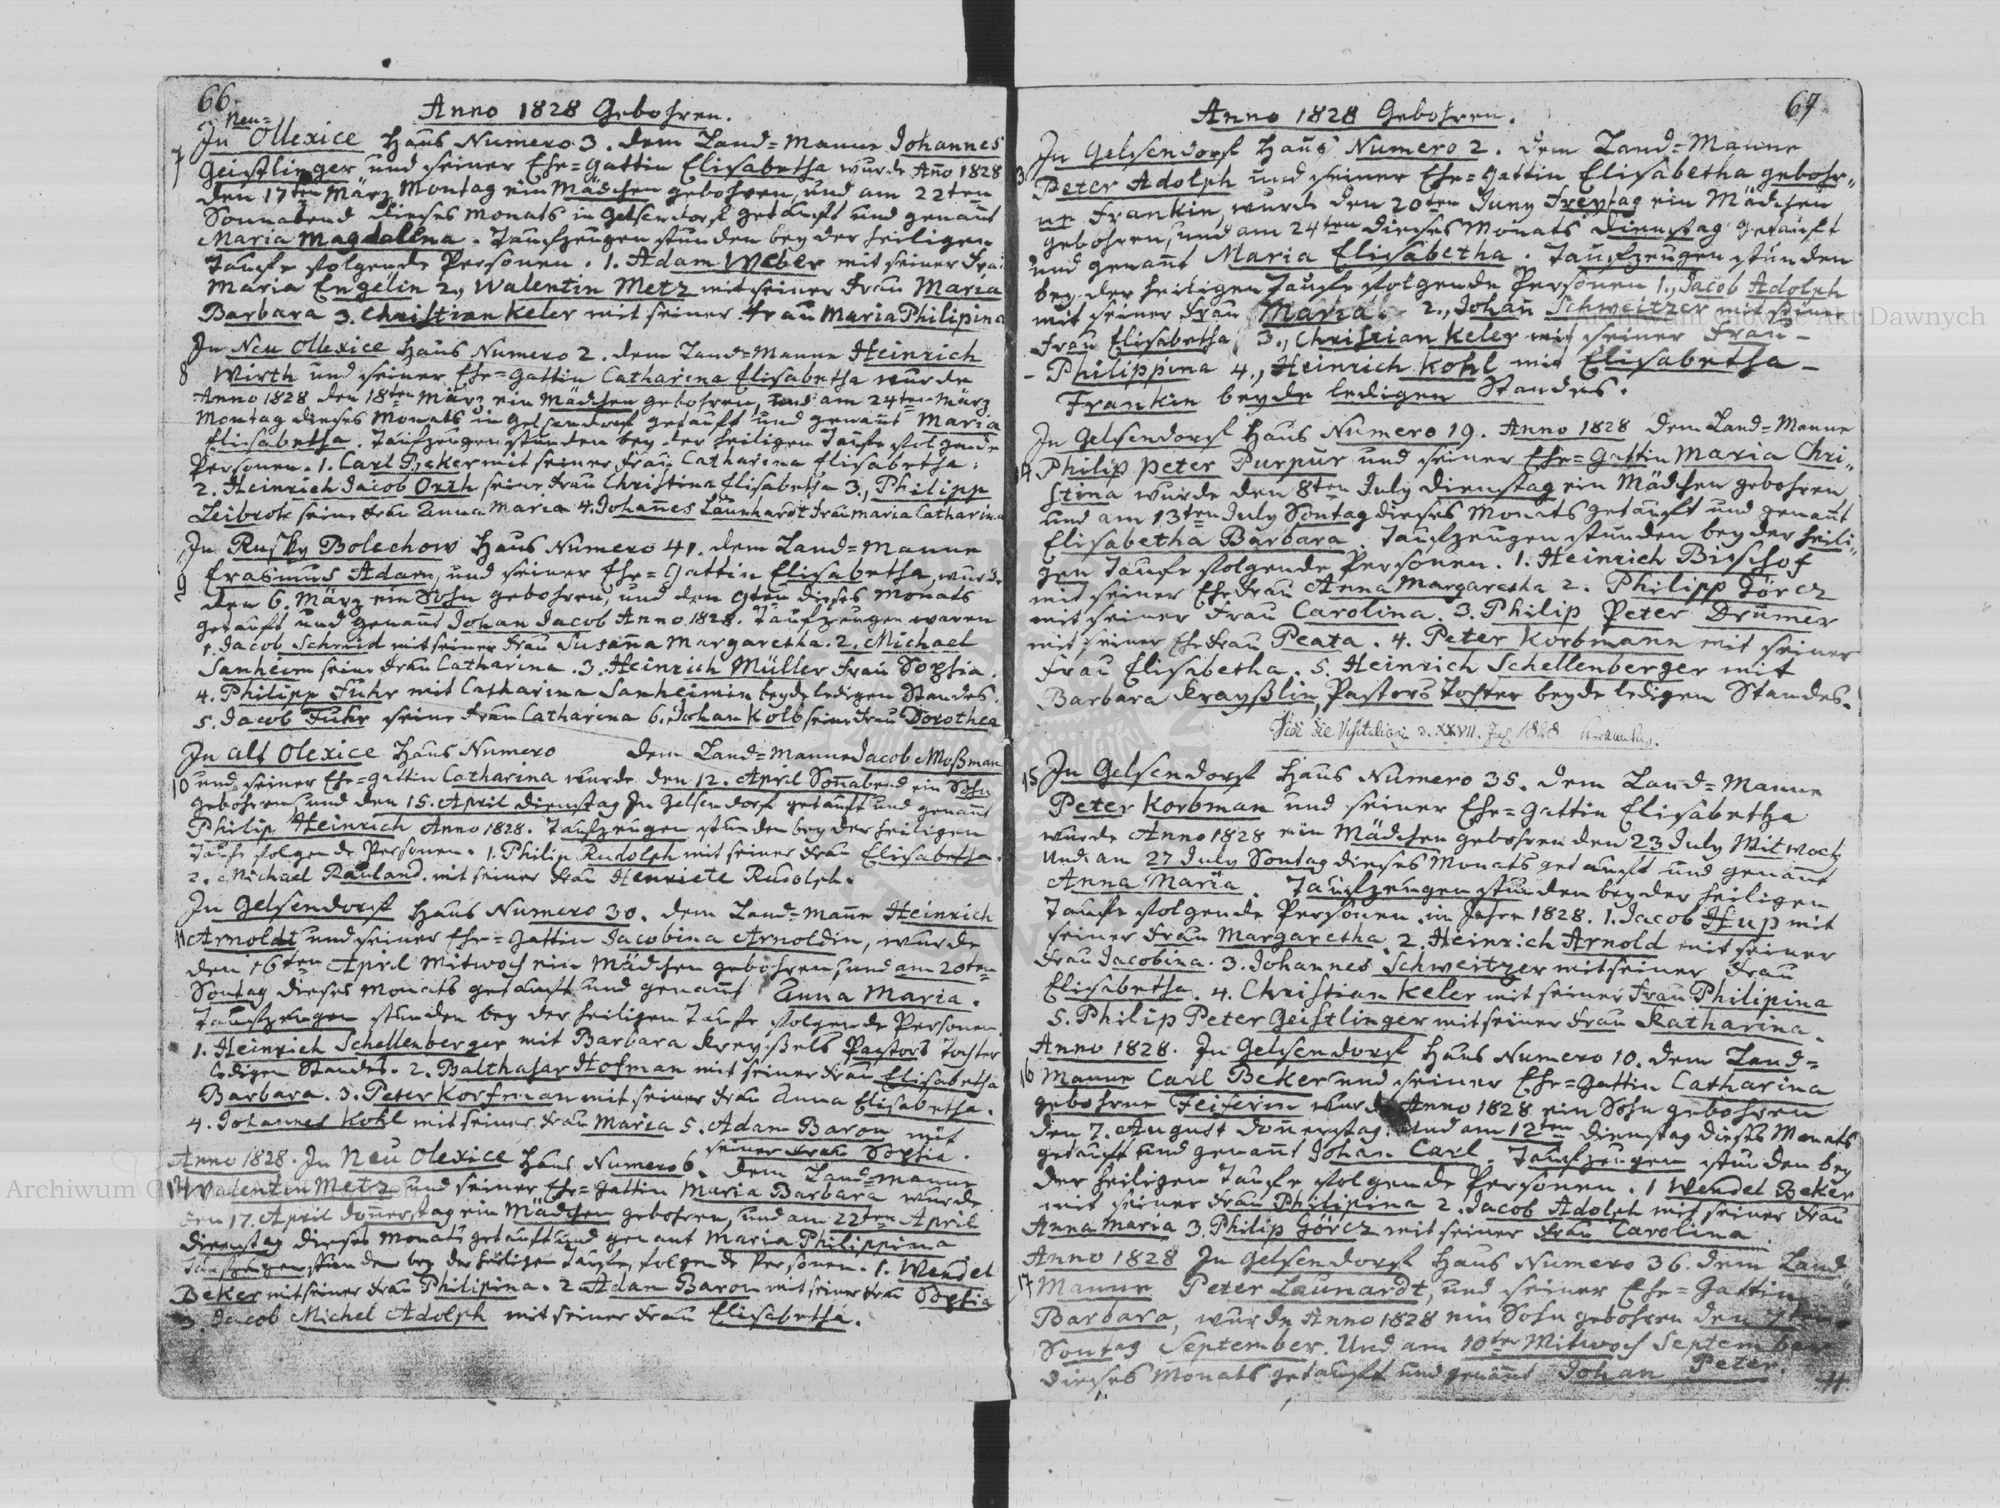 66.
Anno 1828 Gebohren.
Neu=
In Ollexice Hauß Numero 3. dem Land=Manne Johannes
7 Geistlinger und seiner Ehe=Gattin Elisabetha wurde Año 1828
den 17ten März Montag ein Mädchen gebohren, und am 22ten
Sonnabend dieses Monats in Gelsendorf getauft und genannt
Maria Magdalena. Taufzeugen stunden bey der heiligen
Taufe folgende Personen. 1. Adam Weber mit seiner Frau
Maria Engelin 2, Walentin Metz mit seiner Frau Maria
Barbara 3. Christian Keler mit seiner Frau Maria Philipina
In Neu Ollexice Hauß Numero 2. dem Land=Manne Heinrich
8 Wirth und seiner Ehe=Gattin Catharina Elisabetha wurde
Anno 1828 den 18ten März ein Mädchen gebohren, und am 24ten März
Montag dieses Monats in Gelsendorf getauft und genannt Maria
Elisabetha. Taufzeugen stunden bey der heiligen Taufe folgende
Personen. 1. Carl Beker mit seiner Frau Catharina Elisabetha.
2. Heinrich Jacob Orth seine Frau Christina Elisabetha 3., Philipp
Leibrok seine Frau Anna Maria 4. Johannes Launhardt Frau Maria Catharina
In Rusky Bolechow Hauß Numero 41. dem Land=Manne
9 Erasmus Adam, und seiner Ehe=Gattin Elisabetha, wurde
den 6. März ein Sohn gebohren, und den 9ten dieses Monats
getauft und genannt Johan Jacob Anno 1828. Taufzeugen waren
1. Jacob Schmid mit seiner Frau Susaña Margaretha. 2. Michael
Sanheim seine Frau Catharina. 3. Heinrich Müller Frau Sophia.
4. Philipp Fuhr mit Catharina Sanheimin beyde ledigen Standes.
5. Jacob Fuhr seine Frau Catharina 6. Johan Kolb seine Frau Dorothea
In alt Olexice Hauß Numero dem Land=Manne Jacob Moßman
10 und seiner Ehe=Gattin Catharina wurde den 12. April Soñabend ein Sohn
gebohren und den 15. April Dienstag In Gelsendorf getauft und genannt
Philip Heinrich Anno 1828. Taufzeugen stunden bey der heiligen
Taufe folgende Personen. 1. Philip Rudolph mit seiner Frau Elisabetha.
2. Michael Rauland. mit seiner Frau Henriete Rudolph.
In Gelsendorf Hauß Numero 30. dem Land=Mañe Heinrich
11 Arnoldt und seiner Ehe=Gattin Jacobina Arnoldin, wurde
den 16ten April Mitwoch ein Mädchen gebohren, und am 20ten
Sontag dieses Monats getauft und genannt Anna Maria.
Taufzeugen stunden bey der heiligen Taufe folgende Personen.
1. Heinrich Schellenberger mit Barbara Kreyßels Pastors Tochter
ledigen Standes. 2. Balthasar Hofman mit seiner Frau Elisabetha
Barbara. 3. Peter Korfman mit seiner Frau Anna Elisabetha.
4. Johannes Kohl mit seiner Frau Maria 5. Adam Baron mit
seiner Frau Sophia.
Anno 1828. In Neu Olexice Hauß Numero 6. dem Land=Manne
12 Valentin Metz und seiner Ehe=Gattin Maria Barbara wurde
den 17. April Doñerstag ein Mädchen gebohren, und am 22ten April
Dienstag dieses Monats getauft und genant Maria Philippina
Taufzeugen stunden bey der heiligen Taufe, folgende Personen. 1. Wendel
Beker mit seiner Frau Philipina. 2 Adam Baron mit seiner Frau Sophia
3. Jacob Michel Adolph mit seiner Frau Elisabetha.
67
Anno 1828 Gebohren.
In Gelsendorf Hauß Numero 2. dem Land=Manne
13 Peter Adolph und seiner Ehe=Gattin Elisabetha gebohr„
ne Frankin, wurde den 20ten Juny Freytag ein Mädchen
gebohren, und am 24ten dieses Monats Dienstag getauft
und genañt Maria Elisabetha. Taufzeugen stunden
bey der heiligen Taufe folgende Personen 1., Jacob Adolph
mit seiner Frau Maria 2., Johañ Schweitzer mit seiner
Frau Elisabetha 3., Christian Keler mit seiner Frau -
- Philippina 4., Heinrich Kohl mit Elisabetha -
Frankin beyde ledigen Standes.
In Gelsendorf Hauß Numero 19. Anno 1828 dem Land=Manne
14 Philip Peter Purpur und seiner Ehe=Gattin Maria Chri„
stina wurde den 8ten July Dienstag ein Mädchen gebohren
und am 13ten July Sontag dieses Monats getauft und genannt
Elisabetha Barbara. Taufzeugen stunden bey der heili„
gen Taufe folgende Personen. 1. Heinrich Bischof
mit seiner Ehefrau Anna Margaretha 2. Philipp Görcz
mit seiner Frau Carolina. 3. Philip Peter Drümer
mit seiner Ehefrau Peata. 4. Peter Korbmann mit seiner
Frau Elisabetha. 5. Heinrich Schellenberger mit
Barbara Krayßlin, Pastors Tochter beyde ledigen Standes.
1828
15 In Gelsendorf Hauß Numero 35. dem Land=Manne
Peter Korbman und seiner Ehe=Gattin Elisabetha
wurde Anno 1828 ein Mädchen gebohren den 23 July Mitwoch
Und am 27 July Sontag dieses Monats getauft und genannt
Anna Maria. Taufzeugen stunden bey der heiligen
Taufe folgende Personen, im Jahre 1828. 1. Jacob Hup mit
seiner Frau Margaretha. 2. Heinrich Arnold mit seiner
Frau Jacobina. 3. Johannes Schweitzer mit seiner Frau
Elisabetha. 4. Christian Keler mit seiner Frau Philipina
5. Philip Peter Geistlinger mit seiner Frau Katharina.
Anno 1828. In Gelsendorf Hauß Numero 10. dem Land=
16 Manne Carl Beker und seiner Ehe=Gattin Catharina
gebohrne Feiferin wurde Anno 1828 ein Sohn gebohren
den 7. August Doñerstag. Und am 12ten Dienstag dieses Monats
getauft und genannt Johan Carl. Taufzeugen stunden bey
der heiligen Taufe folgende Personen. 1 Wendel Beker
mit seiner Frau Philipina 2. Jacob Adolph mit seiner Frau
Anna Maria 3. Philip Görcz mit seiner Frau Carolina.
Anno 1828 In Gelsendorf Hauß Numero 36. dem Land
17 Manne Peter Launardt, und seiner Ehe=Gattin
Barbara, wurde Anno 1828 ein Sohn gebohren den 7ten
Sontag September. Und am 10ten Mitwoch September
dieses Monats getauft und genannt Johan Peter.
Archiwum Główne Akt Dawnych
Archiwum G